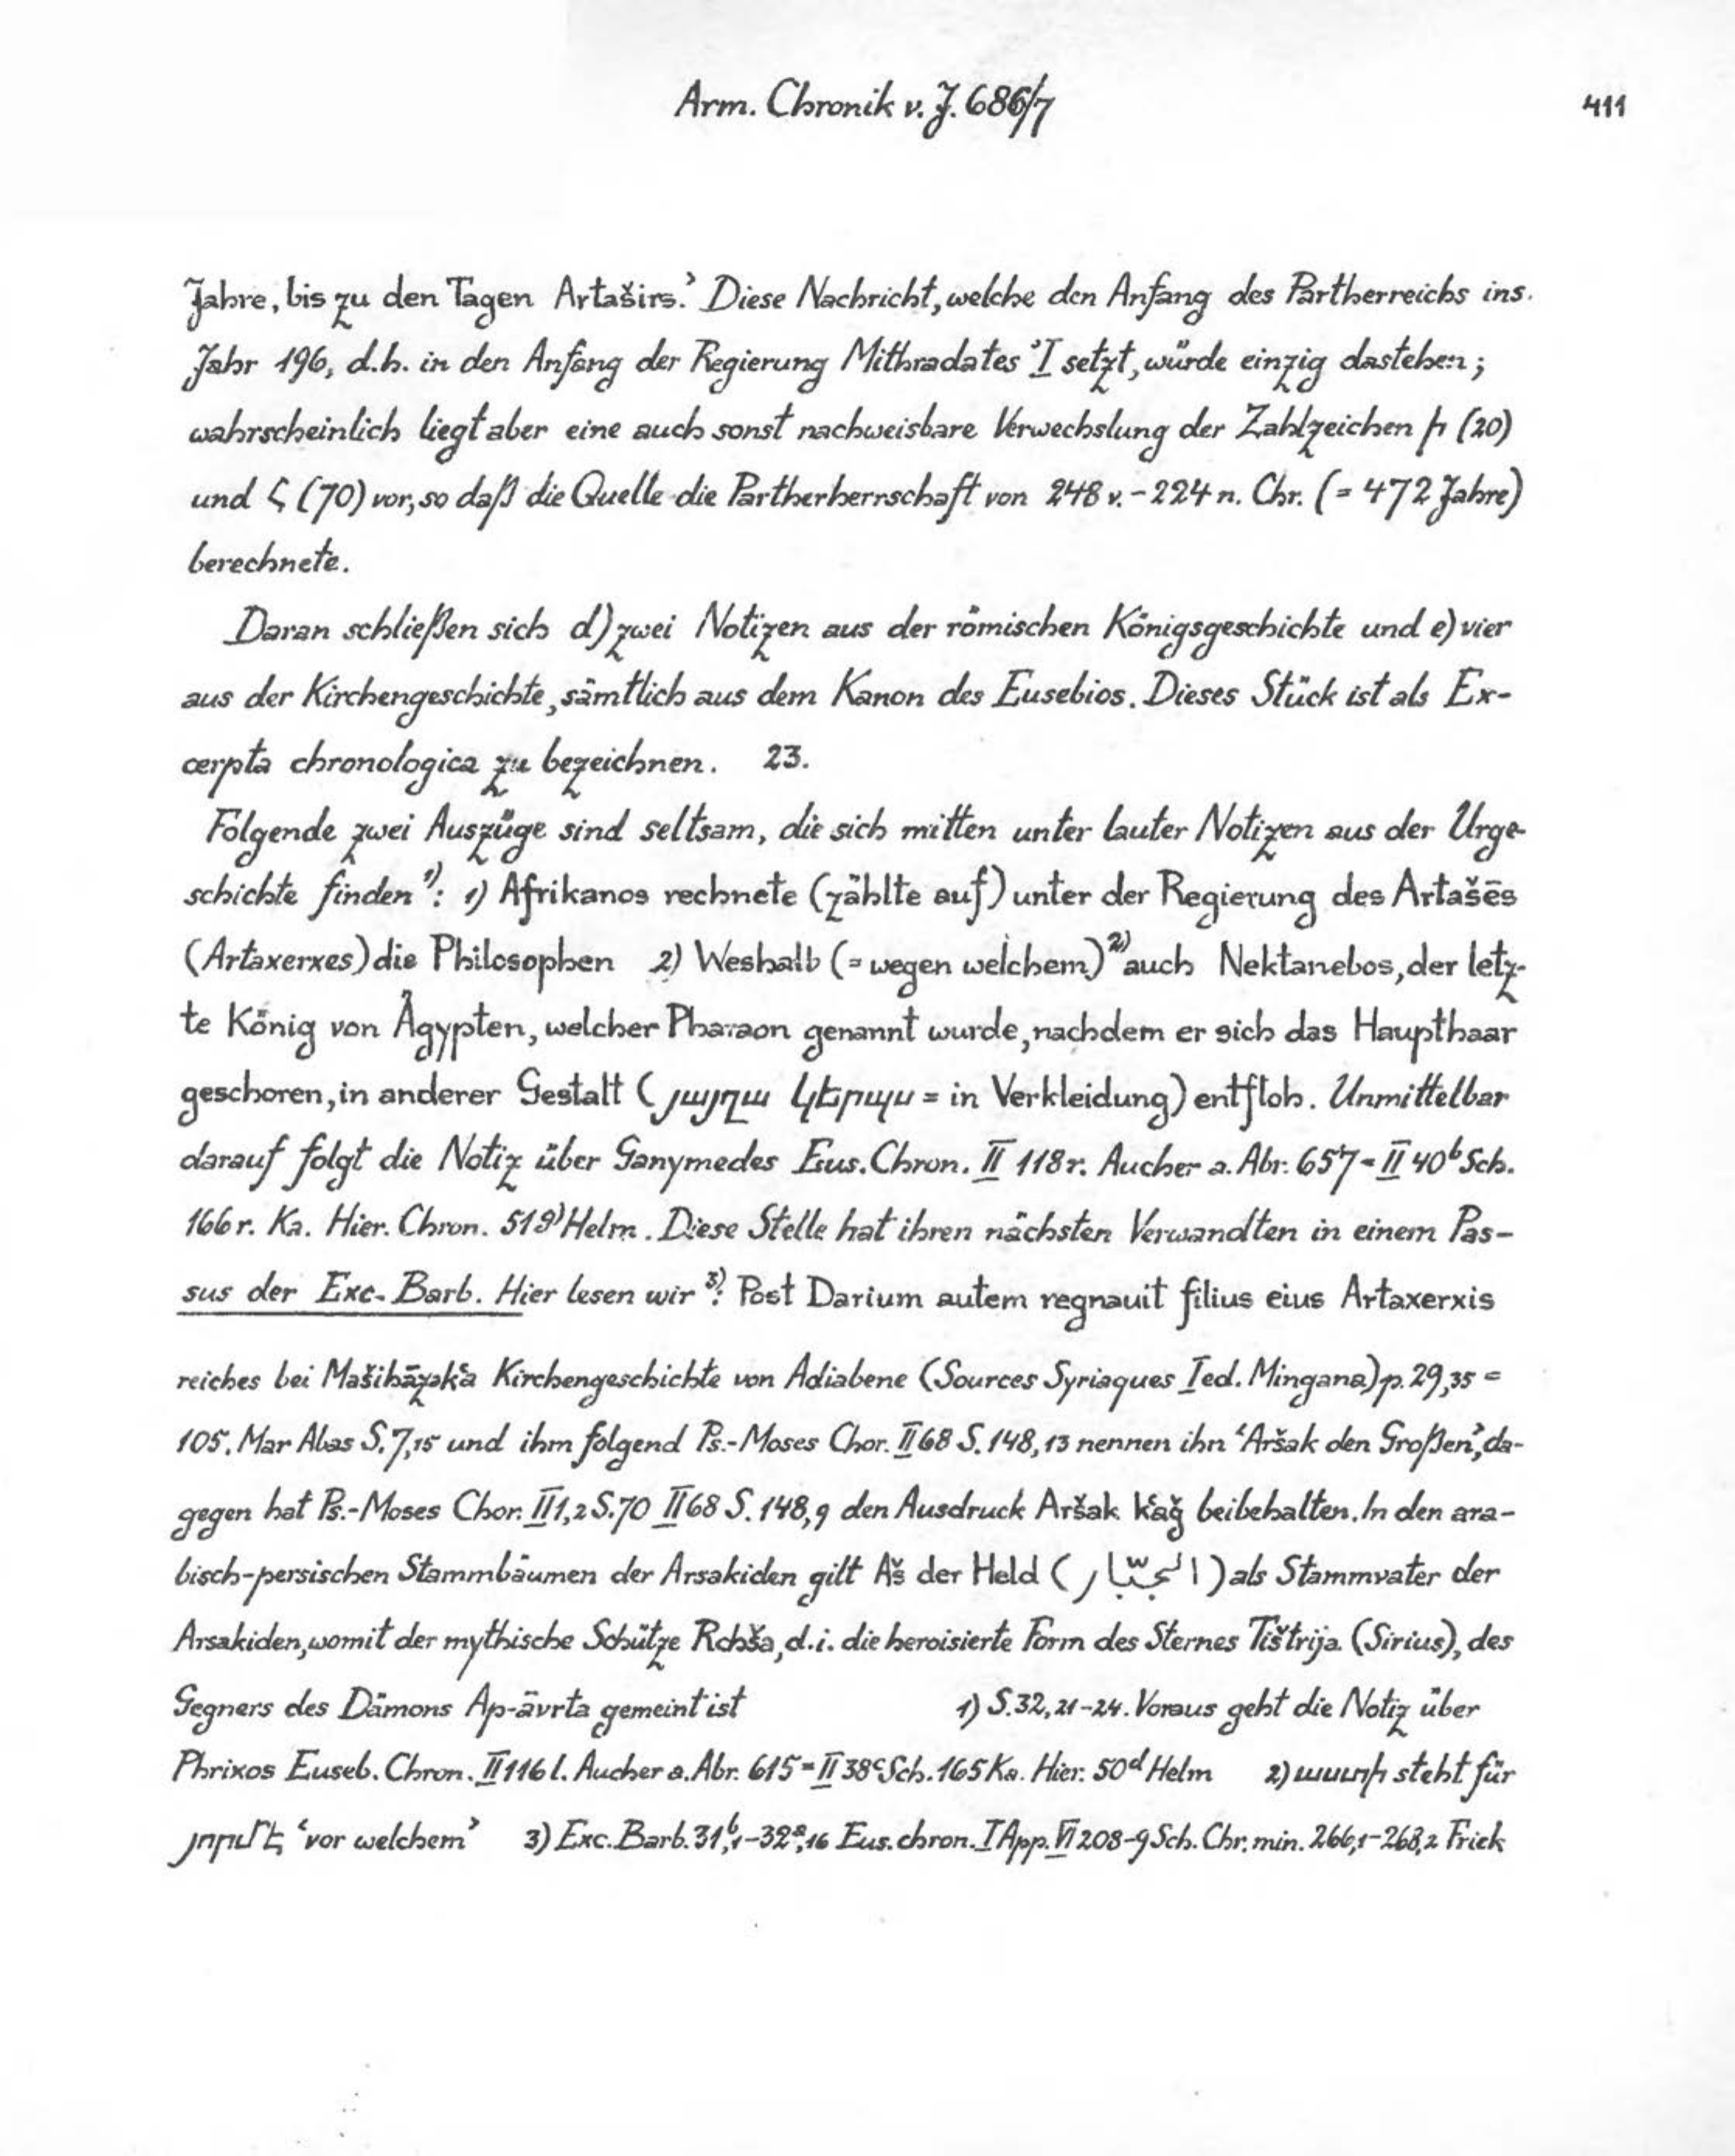 Arm. Chronik v. J. 686/7
411
Jahre, bis zu den Tagen Artaširs.’ Diese Nachricht, welche den Anfang des Partherreichs ins
Jahr 196, d.h. in den Anfang der Regierung Mithradates’ I setzt, würde einzig dastehen;
wahrscheinlich liegt aber eine auch sonst nachweisbare Verwechslung der Zahlzeichen ի (20)
und Հ (70) vor, so daß die Quelle die Partherherrschaft von 248 v. - 224 n. Chr. (= 472 Jahre)
berechnete.
Daran schließen sich d) zwei Notizen aus der römischen Königsgeschichte und e) vier
aus der Kirchengeschichte, sämtlich aus dem Kanon des Eusebios. Dieses Stück ist als Ex-
cerpta chronologica zu bezeichnen. 23.
Folgende zwei Auszüge sind seltsam, die sich mitten unter lauter Notizen aus der Urge-
schichte finden 1): 1) Afrikanos rechnete (zählte auf) unter der Regierung des Artašēs
(Artaxerxes) die Philosophen 2) Weshalb (= wegen welchem) 2) auch Nektanebos, der letz-
te König von Ägypten, welcher Pharaon genannt wurde, nachdem er sich das Haupthaar
geschoren, in anderer Gestalt (յայլա կերպս = in Verkleidung) entfloh. Unmittelbar
darauf folgt die Notiz über Ganymedes Eus. Chron. II 118 r. Aucher a. Abr. 657 = II 40b Sch.
166 r. Ka. Hier. Chron. 51 Helm. Diese Stelle hat ihren nächsten Verwandten in einem Pas-
sus der Exc. Barb. Hier lesen wir 3): Post Darium autem regnauit filius eius Artaxerxis
reiches bei Mašihāzək‘a Kirchengeschichte von Adiabene (Sources Syriaques I ed. Mingana) p. 29,35 =
105. Mar Abas S. 7,15 und ihm folgend Ps.-Moses Chor. II 68 S. 148,13 nennen ihn ‘Aršak den Großen’, da-
gegen hat Ps.-Moses Chor. II 1,2 S. 70 II 68 S. 148,9 den Ausdruck Aršak K‘aǧ beibehalten. In den ara-
bisch-persischen Stammbäumen der Arsakiden gilt Aš der Held (الجبّار) als Stammvater der
Arsakiden, womit der mythische Schütze Rchša, d.i. die heroisierte Form des Sternes Tištrija (Sirius), des
Gegners des Dämons Ap-āvrta gemeint ist 1) S. 32, 21-24. Voraus geht die Notiz über
Phrixos Euseb. Chron. II 116 l. Aucher a. Abr. 615 = II 38c Sch. 165 Ka. Hier. 50d Helm 2) աստի steht für
յորմէ ‘vor welchem’ 3) Exc. Barb. 31b,1-32a,16 Eus. chron. I App. VI 208-9 Sch. Chr. min. 266,1-268,2 Frick